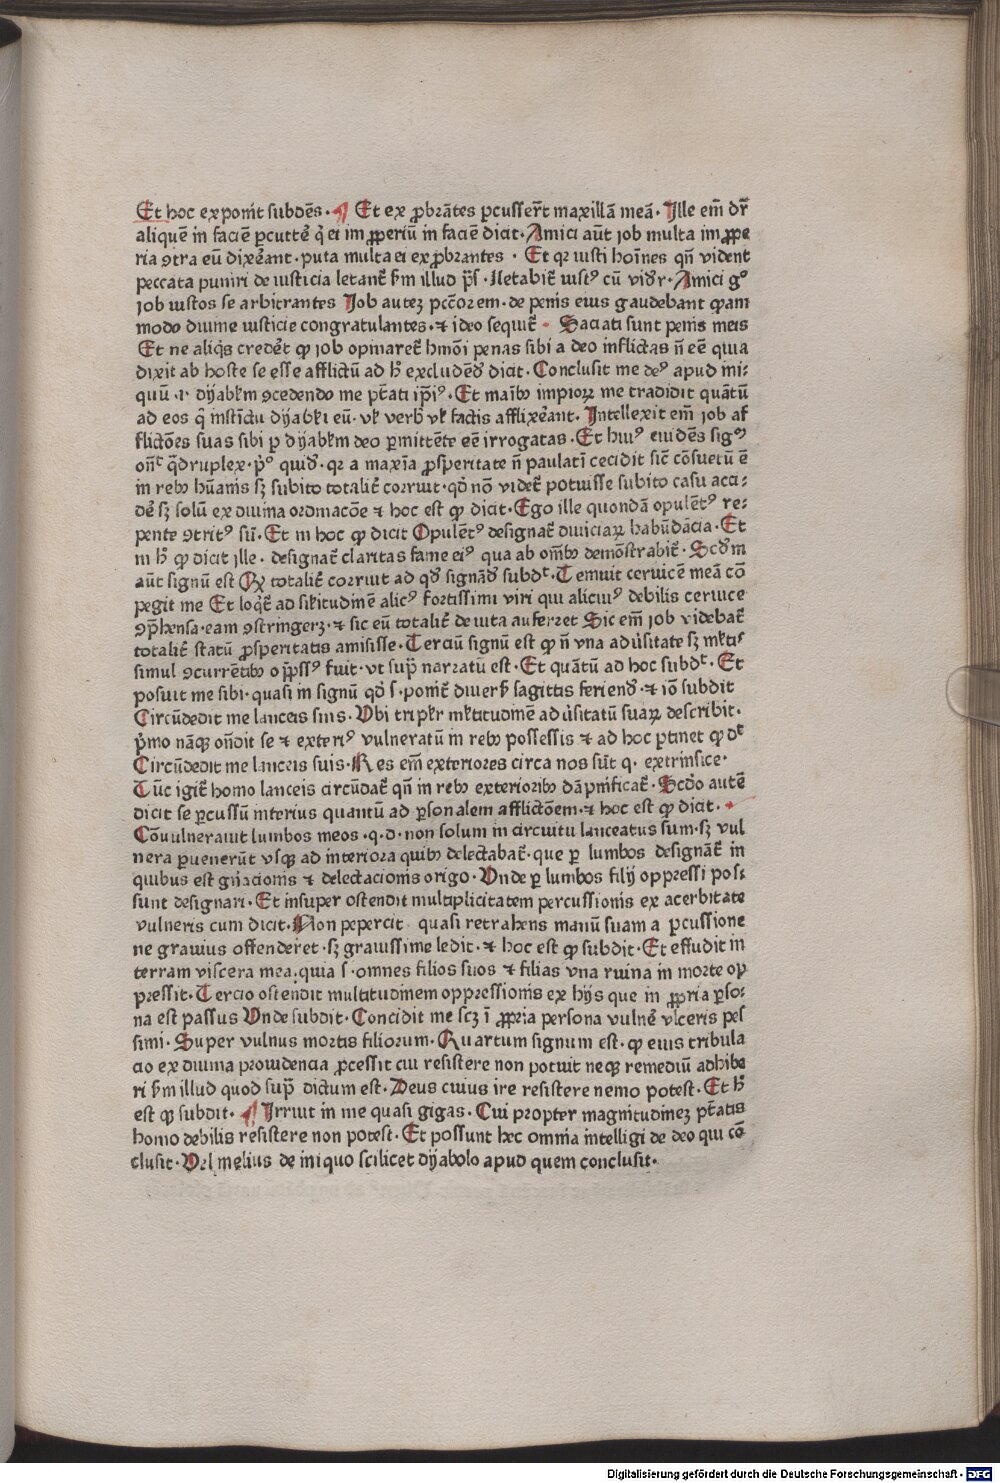 Et hoc exponit subdēs. ¶ Et ex ꝓbrātes ꝑcusser̄t maxillā meā. Ille em̄ dr̄
aliquē in faciē ꝑcutte᷑ qͥ ei imꝓꝑiū in faciē dicit. Amici aūt iob multa imꝓꝑe
ria ꝯtra eū dixe᷑ant. puta multa ei exꝓbrantes. Et qꝛ iusti hoīnes qn̄ vident
peccata puniri de iusticia letant᷑ ẜm illud pˢ. Letabit᷑ iustꝰ cū vid᷑r. Amici gͦ
iob iustos se arbitrantes Iob autez pctōrem. de penis eius gaudebant quam
modo diuine iusticie congratulantes. ⁊ ideo sequit᷑. Saciati sunt penis meis
Et ne aliqͥs crede᷑t ꝙ iob opinaret᷑ hmōi penas sibi a deo inflictas n̄ eē quia
dixit ab hoste se esse afflictū ad hͦ excludend᷑ dicit. Conclusit me deꝰ apud ini⸗
quū. i. dyabl̓m ꝯcedendo me ptāti ip̄iꝰ. Et maībꝫ impioꝝ me tradidit quātū
ad eos qͥ instīctu dyabl̓i eū. vl̓ verb᷑ vl̓ factis afflixe᷑ant. Intellexit em̄ iob af
flictōes suas sibi ꝑ dyabl̓m deo ꝑmittēte eē irrogatas. Et huiꝰ euidēs sigꝫ
on̄ᵗ qͣdruplex. pͦ quid᷑. qꝛ a maxīa ꝓsperitate n̄ paulatī cecidit sic̄ cōsuetū ē
in rebꝫ hūanis sꝫ subito totalit᷑ corruit. qd᷑ nō videt᷑ potuisse subito casu acci⸗
dē sꝫ solū ex diuina ordinacōe ⁊ hoc est ꝙ dicit. Ego ille quondā opulētꝰ re⸗
pente ꝯtritꝰ sū. Et in hoc ꝙ dicit Opulētꝰ designat᷑ diuiciaꝝ habūdācia. Et
in hͦ ꝙ dicit ille. designat᷑ claritas fame eiꝰ qua ab om̄ibꝫ demōstrabit᷑. Scd᷑m
aūt signū est Qꝫ totalit᷑ corruit ad qd᷑ signād᷑ subdᵗ. Tenuit ceruicē meā cō
pegit me Et loqͥt᷑ ad sil̓itudinē alicꝰ fortissimi viri qui aliciuꝰ debilis ceruice
ꝯp̄hensa. eam ꝯstringerꝫ. ⁊ sic eū totalit᷑ de uita auferret Sic em̄ iob videbat᷑
totalit᷑ statū ꝓsperitatis amisisse. Terciū signū est ꝙ n̄ vna aduersitate sꝫ ml̓tiˢ
simul ꝯcurrētibꝫ op̄ssꝰ fuit. vt sup̄ narratū est. Et quātū ad hoc subdᵗ. Et
posuit me sibi. quasi in signū qd᷑ s. ponit᷑ diuersͥ sagittis feriend᷑. ⁊ iō subdit
Circūdedit me lanceis suis. Vbi tripl̓r ml̓titudinē aduersitatū suaꝝ describit.
pͥmo nāqꝫ ondit se ⁊ exteriꝰ vulneratū in rebꝫ possessis ⁊ ad hoc ꝑtinet ꝙ dᵗ
Circūdedit me lanceis suis. Res em̄ exteriores circa nos sūt q. extrinsice.
Tūc igit᷑ homo lanceis circūdat᷑ qn̄ in rebꝫ exterioribꝫ dāpnificat᷑. Scd᷑o autē
dicit se ꝑcussū interius quantū ad ꝑsonalem afflictōem. ⁊ hoc est ꝙ dicit.
Cōuulnerauit lumbos meos. q. d. non solum in circuitu lanceatus sum. sꝫ vul
nera ꝑuenerūt vsqꝫ ad interiora quibꝫ delectabat᷑. que ꝑ lumbos designāt᷑ in
quibus est gn̄acionis ⁊ delectacionis origo. Vnde ꝑ lumbos filij oppressi pos⸗
sunt designari. Et insuper ostendit multiplicitatem percussionis ex acerbitate
vulneris cum dicit. Non pepercit quasi retrahens manū suam a ꝑcussione
ne grauius offenderet. sꝫ grauissime ledit. ⁊ hoc est ꝙ subdit. Et effudit in
terram viscera mea. quia s. omnes filios suos ⁊ filias vna ruina in morte op
pressit. Tercio ostendit multitudinem oppressionis ex hijs que in ꝓpria ꝑso⸗
na est passus Vnde subdit. Concidit me scꝫ ī ꝓpria persona vulne᷑ vlceris pes
simi. Super vulnus mortis filiorum. Quartum signum est. ꝙ eius tribula
cio ex diuina prouidencia ꝓcessit cui resistere non potuit neqꝫ remediū adhibe
ri ẜm illud quod sup̄ dictum est. Deus cuius ire resistere nemo potest. Et hͦ
est ꝙ subdit. ¶ Irruit in me quasi gigas. Cui propter magnitudinez ptātis
homo debilis resistere non potest. Et possunt hec omnia intelligi de deo qui cō
clusit. Vel melius de iniquo scilicet dyabolo apud quem conclusit.
Digitalisierung gefördert durch die Deutsche Forschungsgemeinschaft - DFG